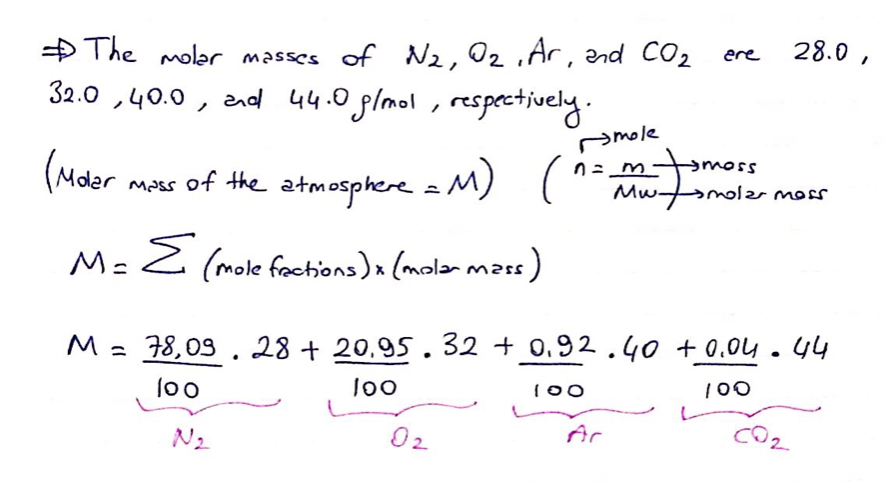 ⇒ The molar masses of N2, O2, Ar, and CO2 are 28.0,
32.0, 40.0, and 44.0 g/mol, respectively.
(Molar mass of the atmosphere = M) (n = m/Mw) → mole → mass → molar mass
M = Σ (mole fractions) x (molar mass)
M = 78,09/100 . 28 + 20,95/100 . 32 + 0,92/100 . 40 + 0,04/100 . 44
N2 O2 Ar CO2